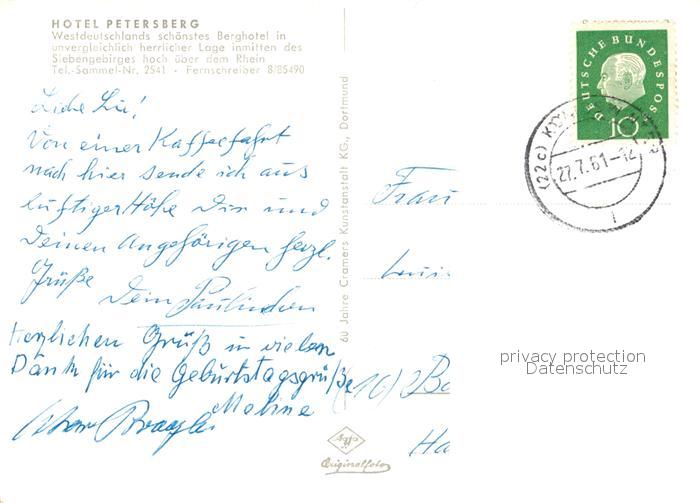 HOTEL PETERSBERG
Westdeutschlands schönstes Berghotel in
unvergleichlich herrlicher Lage inmitten des
Siebengebirges hoch über dem Rhein
Tel.-Sammel-Nr. 2541 · Fernschreiber 8/85490
Liebe
Von einer Kaffeefahrt
nach hier sende ich aus
luftiger Höhe Dir und
Deinen Angehörigen herzl.
Grüße
Dein
Herzlichen Gruß u. vielen
Dank für die Geburtstagsgrüße
60 Jahre Cramers Kunstanstalt KG., Dortmund
Originalfoto
DEUTSCHE BUNDESPOST
10
(22c)
27.7.61-12
Frau
(16) Ba
Ha
privacy protection
Datenschutz